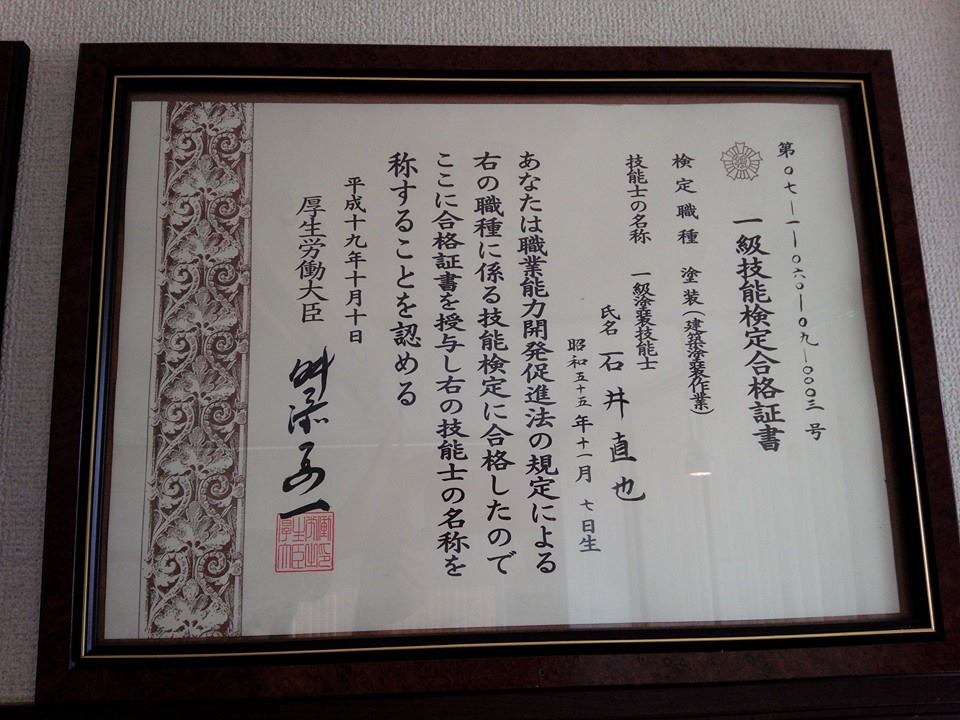 第〇七―一―一〇六〇―〇九―〇〇〇三号
一級技能検定合格証書
検定職種 塗装(建築塗装作業)
技能士の名称 一級塗装技能士
氏名 石井直也
昭和五十五年十一月七日生
あなたは職業能力開発促進法の規定による
右の職種に係る技能検定に合格したので
ここに合格証書を授与し右の技能士の名称を
称することを認める
平成十九年十月十日
厚生労働大臣 舛添要一
厚生労働大臣